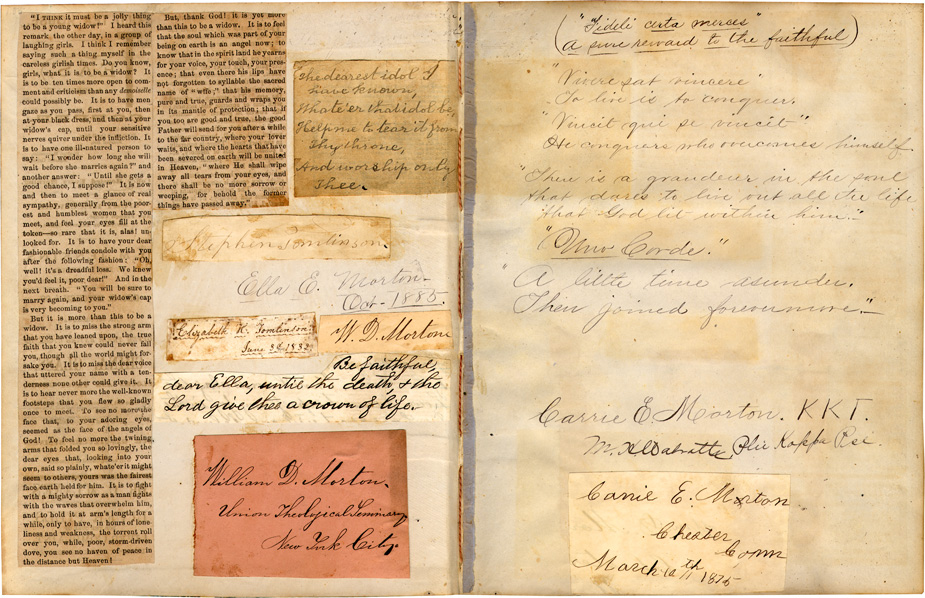 "I THINK it must be a jolly thing
to be a young widow!" I heard this
remark, the other day, in a group of
laughing girls. I think I remember
saying such a thing myself in the
careless girlish times. Do you know,
girls, what it is to be a widow? It
is to be ten times more open to com-
ment and criticism than any demoiselle
could possibly be. It is to have men
gaze as you pass, first at you, then
at your black dress, and then at your
widow's cap, until your sensitive
nerves quiver under the infliction. It
is to have one ill-natured person to
say: "I wonder how long she will
wait before she marries again?" and
another answer: "Until she gets a
good chance, I suppose!" It is now
and then to meet a glance of real
sympathy, generally from the poor-
est and humblest women that you
meet, and feel your eyes fill at the
token—so rare that it is, alas! un-
looked for. It is to have your dear
fashionable friends condole with you
after the following fashion: "Oh,
well! it's a dreadful loss. We knew
you'd feel it, poor dear!" And in the
next breath. "You will be sure to
marry again, and your widow's cap
is very becoming to you."
But it is more than this to be a
widow. It is to miss the strong arm
that you have leaned upon, the true
faith that you knew could never fail
you, though all the world might for-
sake you. It is to miss the dear voice
that uttered your name with a ten-
derness none other could give it. It
is to hear never more the well-known
footsteps that you flew so gladly
once to meet. To see no more the
face that, to your adoring eyes,
seemed as the face of the angels of
God! To feel no more the twining
arms that folded you so lovingly, the
dear eyes that, looking into your
own, said so plainly, whate'er it might
seem to others, yours was the fairest
face earth held for him. It is to fight
with a mighty sorrow as a man fights
with the waves that overwhelm him,
and to hold it at arm's length for a
while, only to have, in hours of lone-
liness and weakness, the torrent roll
over you, while, poor, storm-driven
dove, you see no haven of peace in
the distance but Heaven!
But, thank God! it is yet more
than this to be a widow. It is to feel
that the soul which was part of your
being on earth is an angel now; to
know that in the spirit land he yearns
for your voice, your touch, your pres-
ence; that even there his lips have
not forgotten to syllable the sacred
name of "wife;" that his memory,
pure and true, guards and wraps you
in its mantle of protection; that if
you too are good and true, the good
Father will send for you after a while
to the far country, where your lover
waits, and where the hearts that have
been severed on earth will be united
in Heaven, "where He shall wipe
away all tears from your eyes, and
there shall be no more sorrow or
weeping, for behold the former
things have passed away."
The dearest idol I
have known,
Whate'er that idol be,
Help me to tear it from
Thy throne,
And worship only
Thee.
Stephen Tomlinson.
Ella E. Morton.
Oct- 1885.
Elizabeth K. Tomlinson.
June 3d 1882.
W. D. Morton
Be faithful,
dear Ella, until the death & the
Lord give thee a crown of life.
William D. Morton.
Union Theological Seminary
New York City.
("Fideli certa merces"
a sure reward to the faithful)
"Vivere sat vincere"
To live is to conquer.
"Vincit qui se vincit"
He conquers who overcomes himself
"There is a grandeur in the soul
that dares to live out all the life
that God lit within him."
"Uno Corde."
"A little time asunder.
Then joined forevermore."
Carrie E. Morton. K K Γ.
Phi Kappa Psi.
Carrie E. Morton
Chester
Conn
March 10th 1875